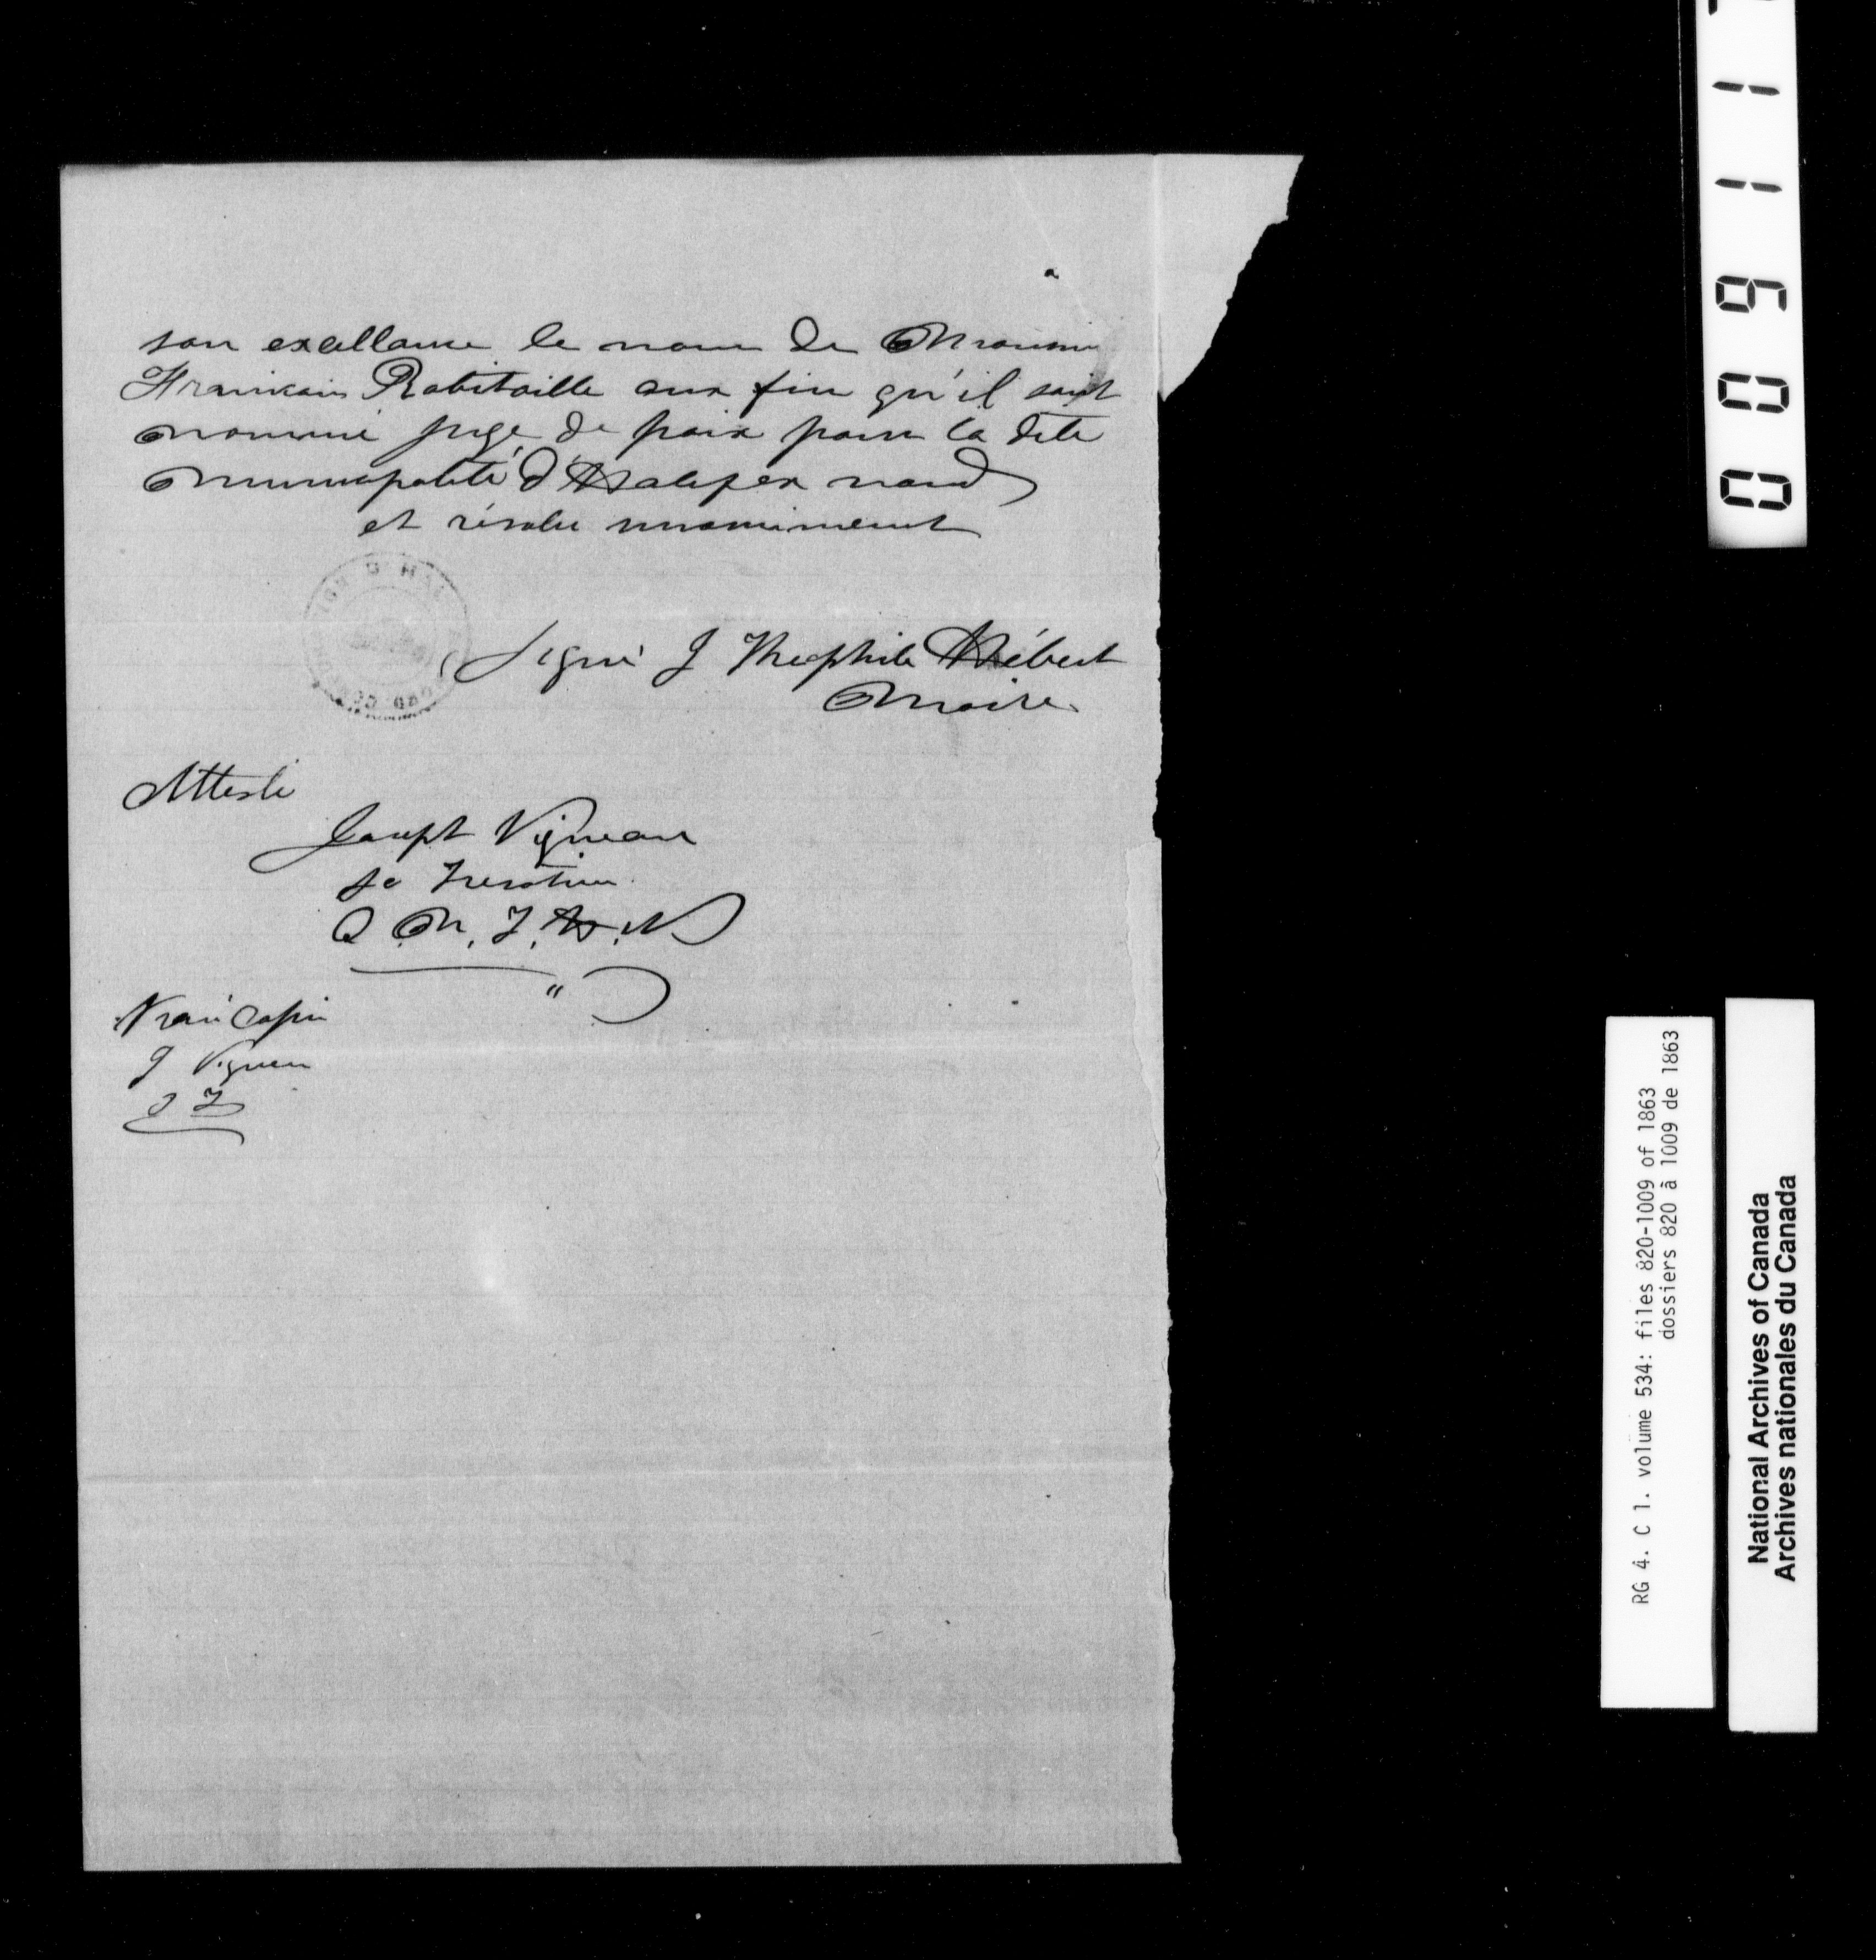 son exellance le nom de Monsieur
Francois Robitaille aux fin qu'il soit
nommé juge de paix pour la dite
municipalité d'Halifax nord
et résolu unanimement
Signé J Theophile Hébert
Maire
Attesté
Joseph Vigneau
Se Tresorier
C. M. T. H. N
Vraie Copie
J Vigneau
S T
0 0 9 1 1
RG 4. C 1. volume 534: files 820-1009 of 1863
dossiers 820 à 1009 de 1863
National Archives of Canada
Archives nationales du Canada